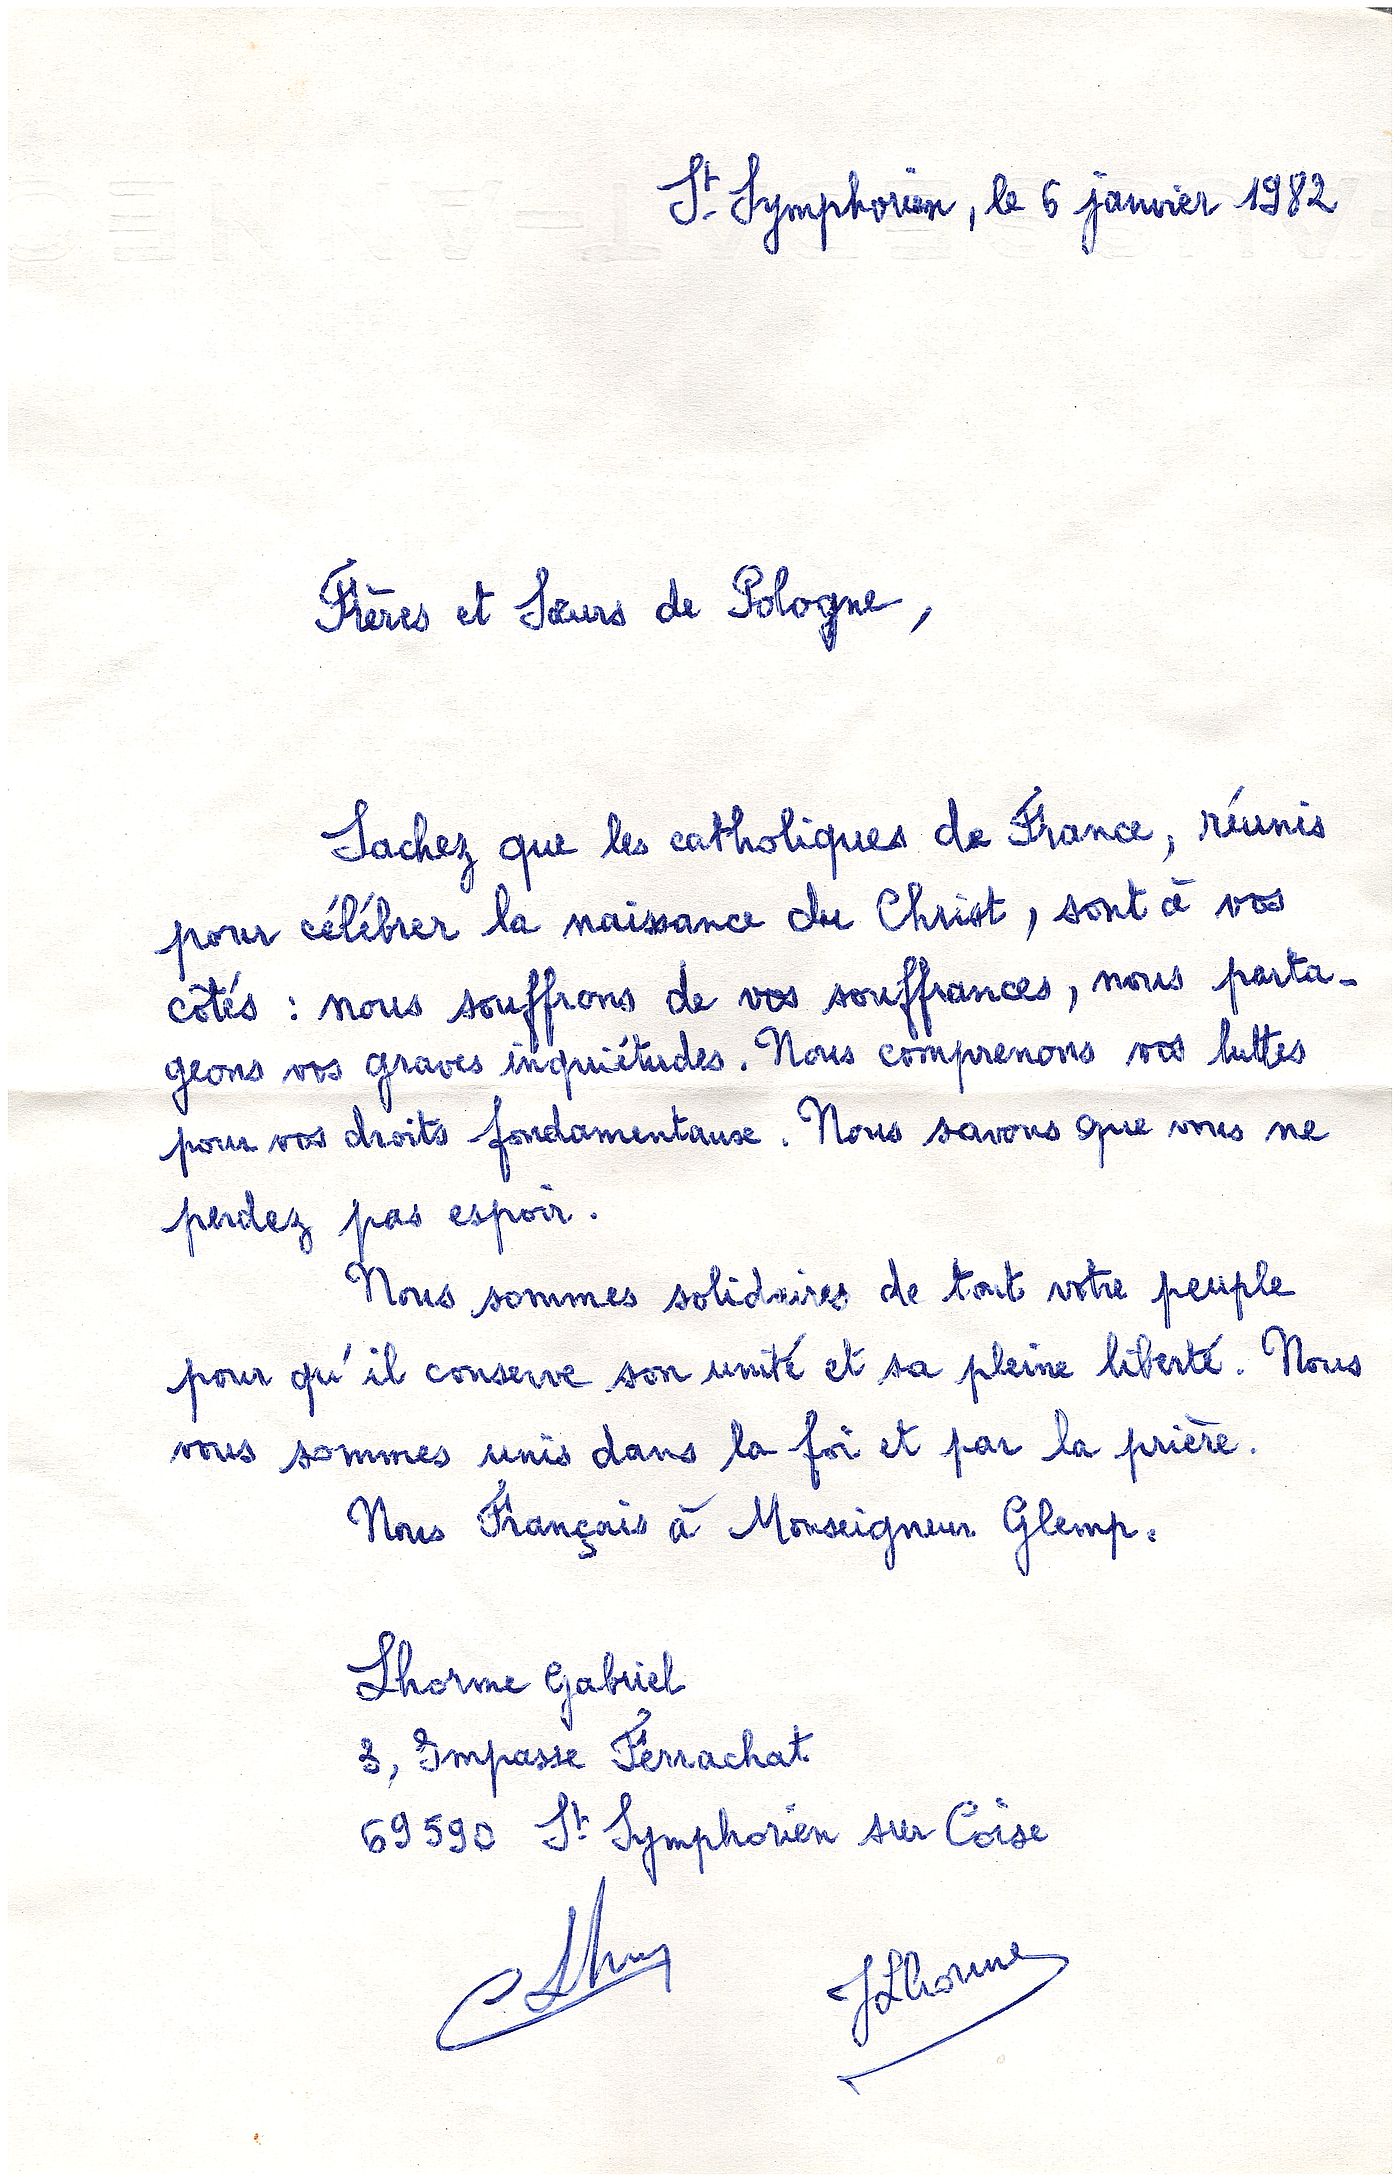 St Symphorien, le 6 janvier 1982
Frères et Sœurs de Pologne,
Sachez que les catholiques de France, réunis
pour célébrer la naissance du Christ, sont à vos
côtés : nous souffrons de vos souffrances, nous parta-
geons vos graves inquiétudes. Nous comprenons vos luttes
pour vos droits fondamentaux. Nous savons que vous ne
perdez pas espoir.
Nous sommes solidaires de tout votre peuple
pour qu'il conserve son unité et sa pleine liberté. Nous
vous sommes unis dans la foi et par la prière.
Nous Français à Monseigneur Glemp.
Lhorme Gabriel
3, Impasse Ferrachat
69590 St Symphorien sur Coise
JLhorme